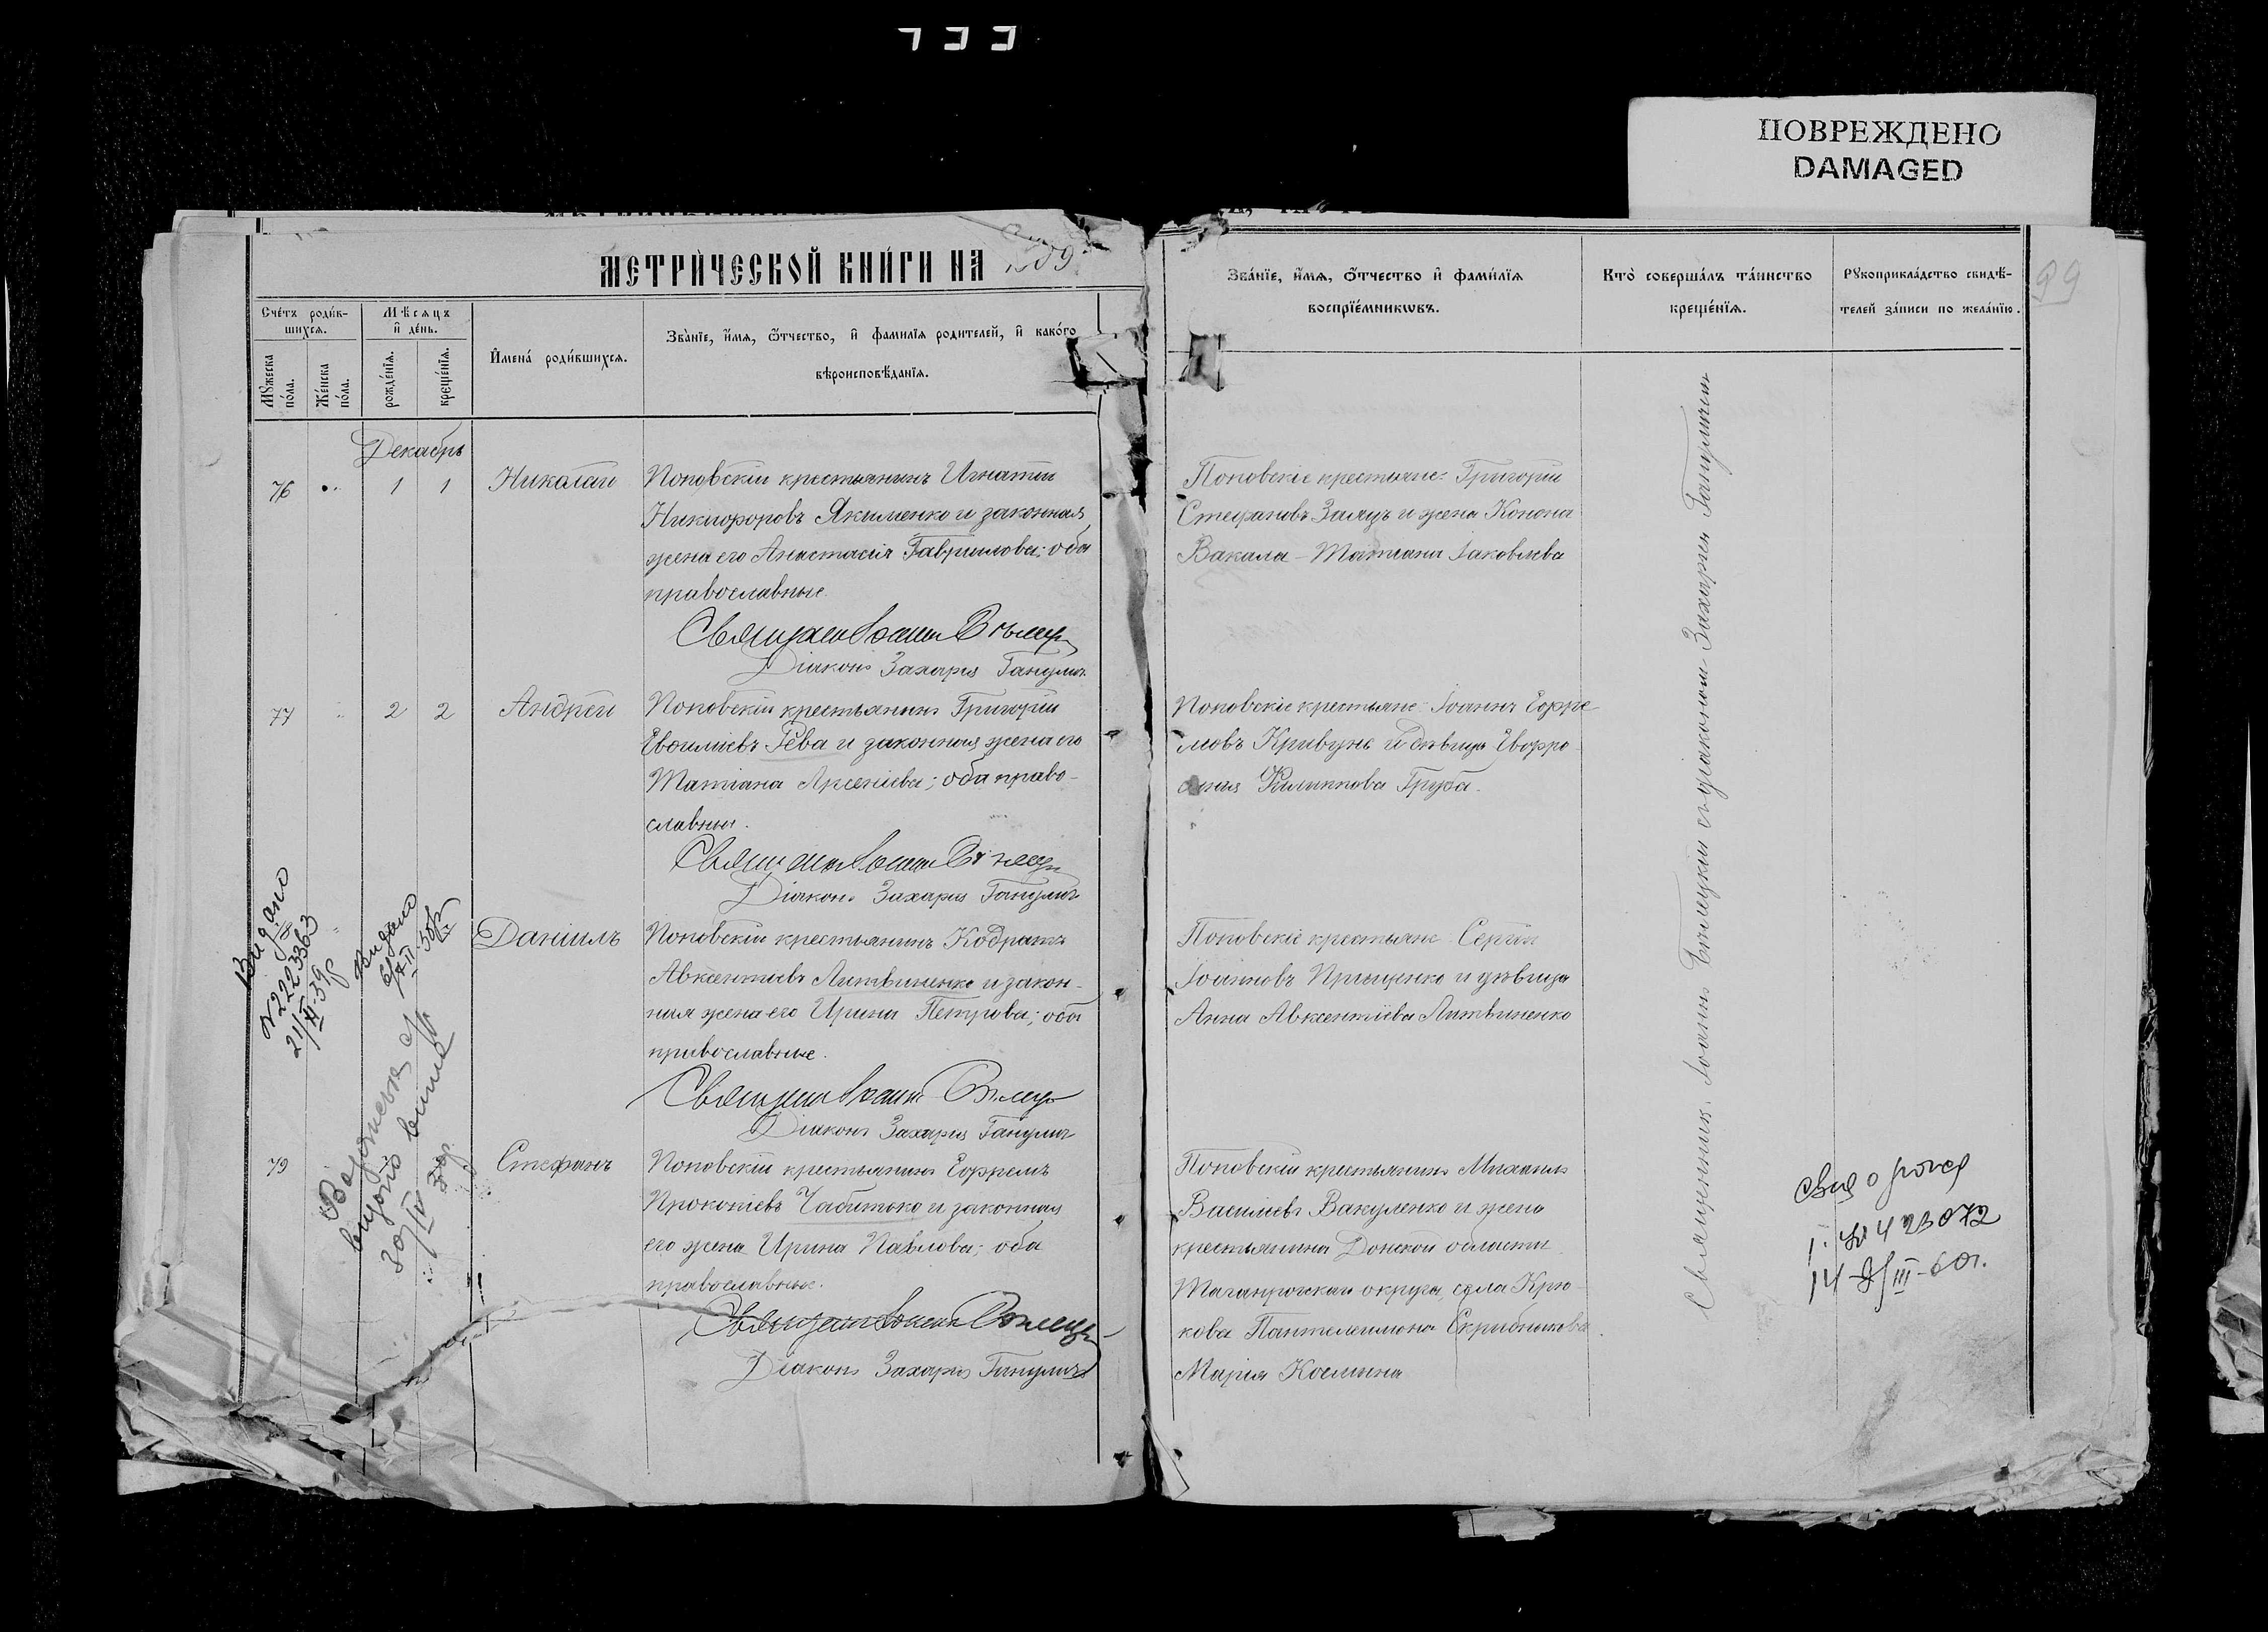 ПОВРЕЖДЕНО
DAMAGED
МЕТРИ́ЧЕСКОЙ КНИ́ГИ НА 1909
Счéтъ роди́в-
шихся.
Мѣ́сяцъ
и҆ де́нь.
Мꙋжеска
по́ла.
Же́нска
по́ла.
рожде́нїѧ.
креще́нїѧ.
И҆мена́ роди́вшихсѧ.
Зва́нїе, и҆́мѧ, ѻ҆́тчество, и҆ фами́лїѧ роди́телей, и҆ како́гѡ
вѣроисповѣ́данїѧ.
Зва́нїе, и҆́мѧ, ѻ҆́тчество и҆ фами́лїѧ
воспрїе́мникѡвъ.
Кто̀ соверша́лъ та́инство
креще́нїѧ.
Рꙋкоприкла́дство свидѣ́-
телей за́писи по жела́нїю.
99
Декабрь
76
1 1
Николай
Поповскій крестьянинъ Игнатій
Никифоровъ Якименко и законная
жена его Анастасія Гаврилова; оба
православные.
Діаконъ Захарія Ганулич
Поповскіе крестьяне: Григорій
Стефановъ Заяцъ и жена Конона
Вакала – Татіана Іаковлева
77
2 2
Андрей
Поповскій крестьянинъ Григорій
Евфиміевъ Гева и законная жена его
Татіана Арсеніева; оба право-
славные.
Діаконъ Захарія Ганулич
Поповскіе крестьяне Іоаннъ Ефре
мовъ Кривунъ и дѣвица Евфро-
синія Филиппова Груба.
Видано
№ 223363
21/XI 39 р
Даніилъ
Поповскій крестьянинъ Кодратъ
Авксентіевъ Литвиненко и закон-
ная жена его Ирина Петрова; оба
православные.
Діаконъ Захарія Ганулич
Поповскіе крестьяне Сергій
Іоанновъ Прищенко и дѣвица
Анна Авксентіева Литвиненко
79
Стефанъ
Поповскій крестьянинъ Ефремъ
Прокопіевъ Чабитько и законная
его жена Ирина Павлова; оба
православные.
Діаконъ Захарія Ганулич
Поповскій крестьянинъ Михаилъ
Василіевъ Вакуленко и жена
крестьянина Донской области
Таганрогскаго округа, села Крю-
кова Пантелеимона Скрибникова
Марія Косьмина
Священникъ Іоаннъ Бѣлецкій съ діакономъ Захаріею Гануличемъ
I
№ 423072
14 III-60г.